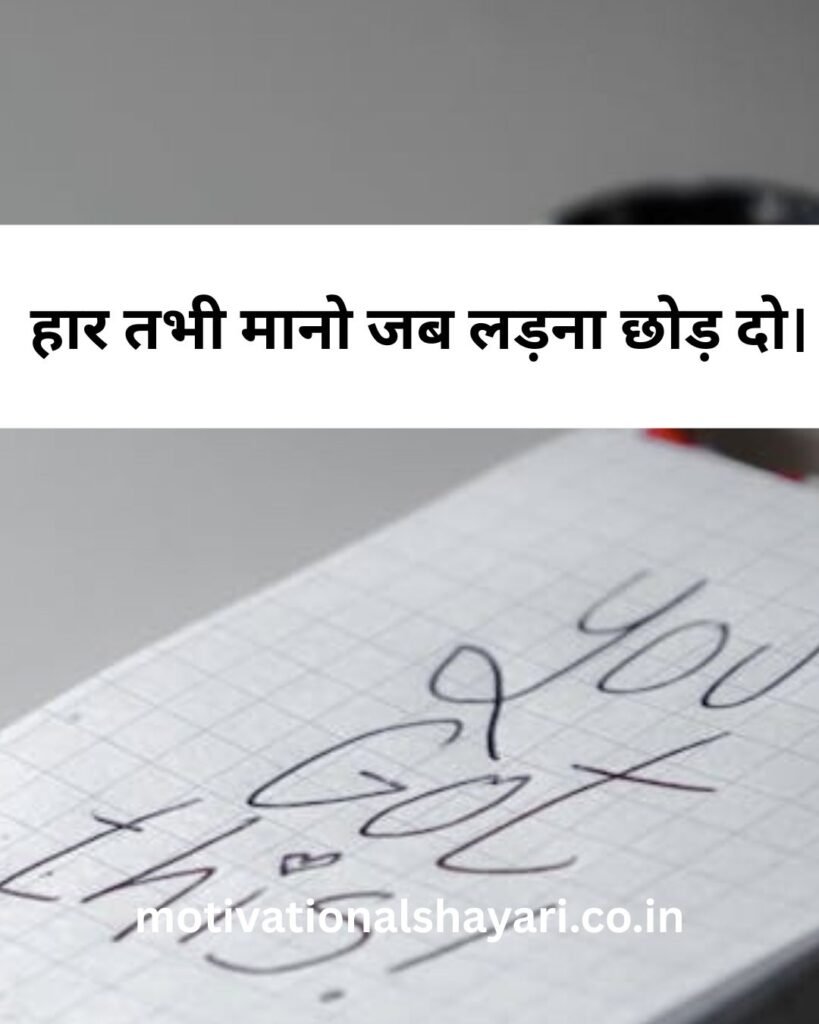 हार तभी मानो जब लड़ना छोड़ दो।
you
Got
this!
motivationalshayari.co.in